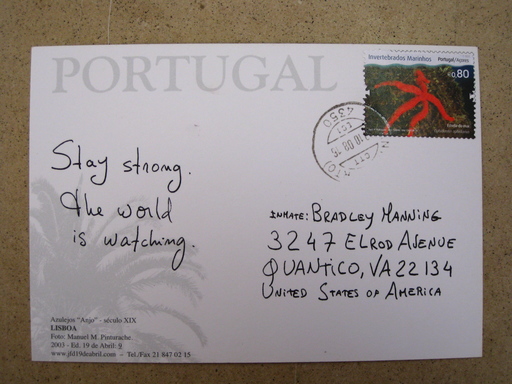 PORTUGAL
Invertebrados Marinhos Portugal/Açores
0,80
4350
Stay strong.
The world
is watching.
INMATE: BRADLEY MANNING
3247 ELROD AVENUE
QUANTICO, VA 22134
UNITED STATES OF AMERICA
Azulejos "Anjo" - século XIX
LISBOA
Foto: Manuel M. Pinturache
2003 - Ed. 19 de Abril: 9
www.jfd19deabril.com - Tel./Fax 21 847 02 15